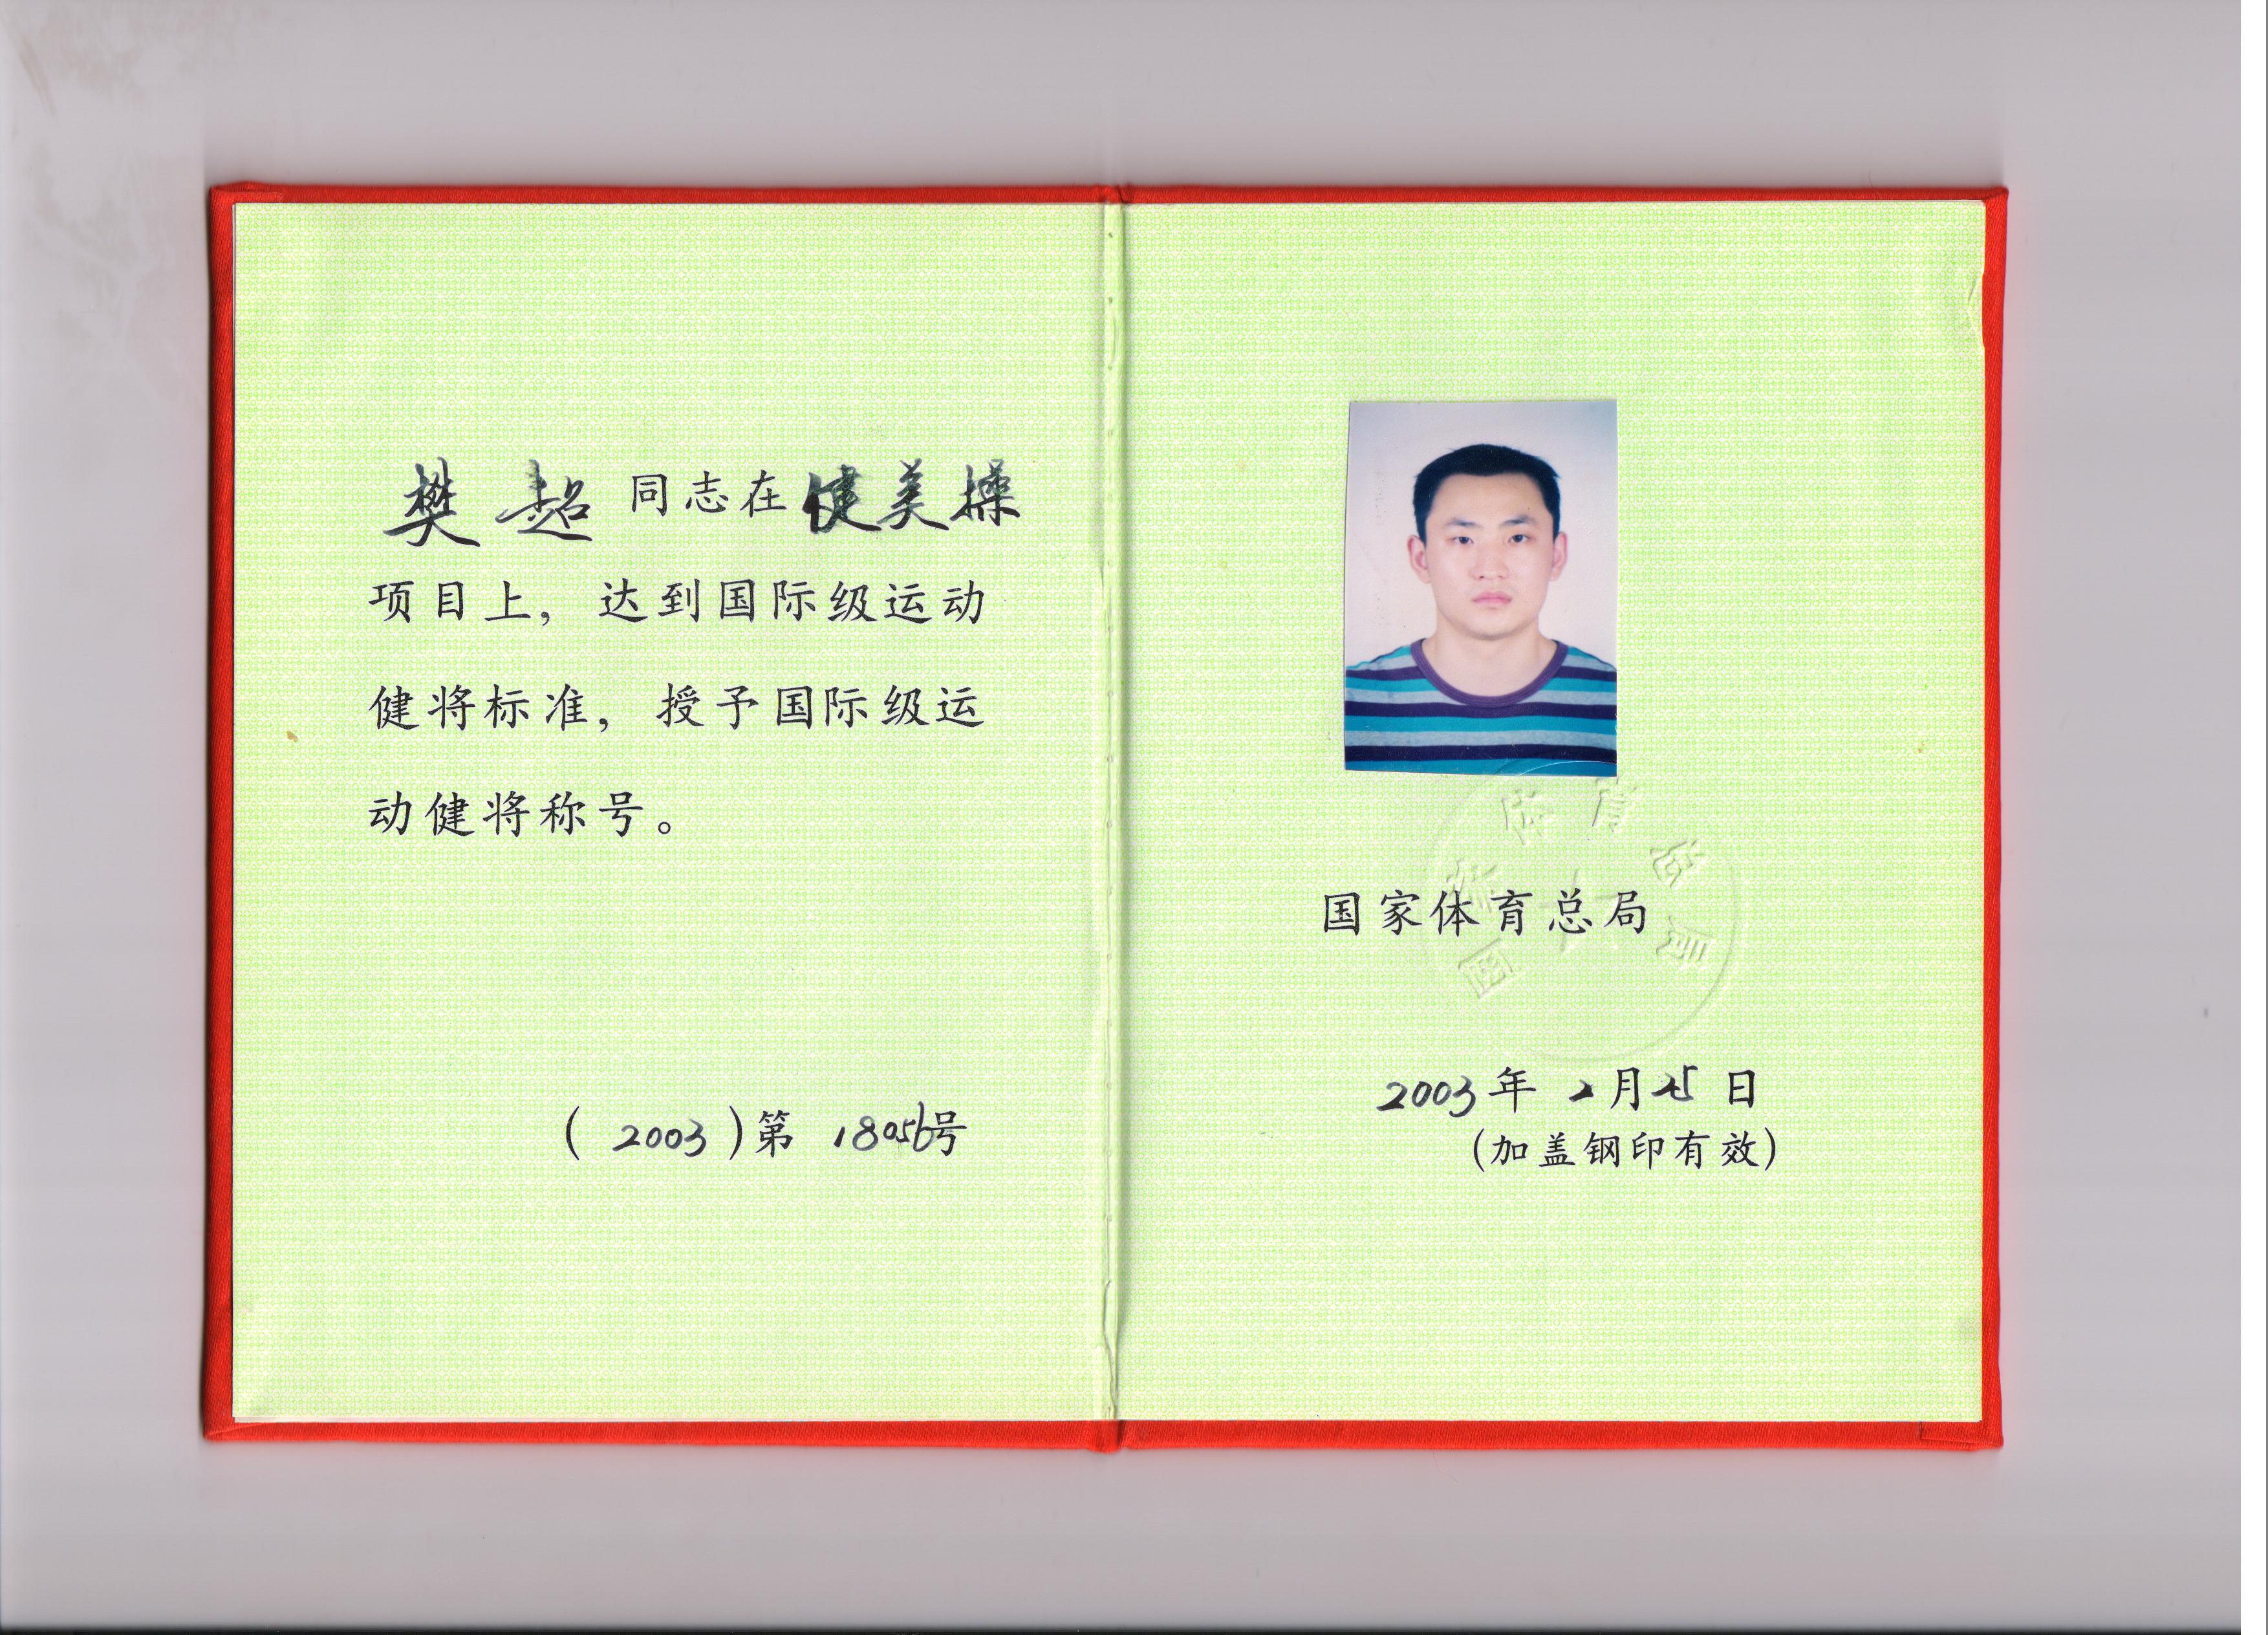 樊超同志在健美操
项目上，达到国际级运动
健将标准，授予国际级运
动健将称号。
(2003)第18056号
国家体育总局
国家体育总局
2003年2月25日
(加盖钢印有效)